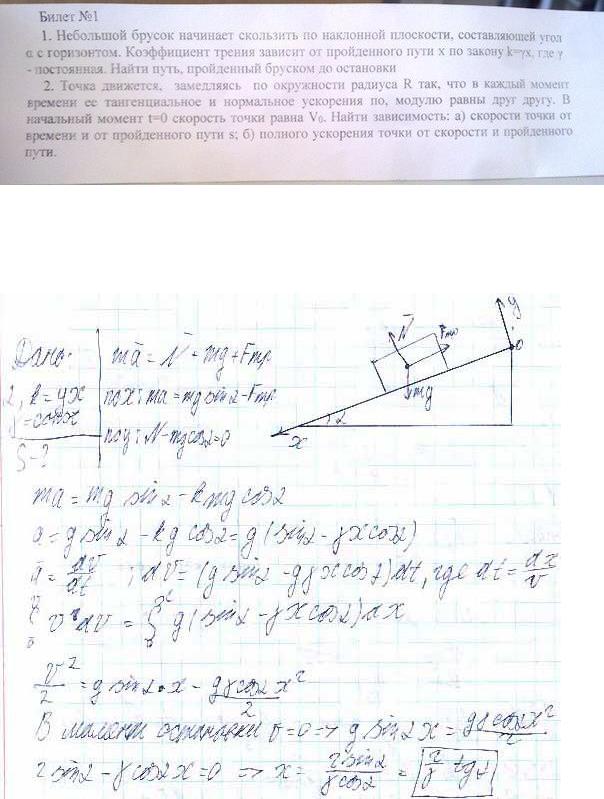 Билет №1
1. Небольшой брусок начинает скользить по наклонной плоскости, составляющей угол
α с горизонтом. Коэффициент трения зависит от пройденного пути x по закону k=γx, где γ
- постоянная. Найти путь, пройденный бруском до остановки
2. Точка движется, замедляясь по окружности радиуса R так, что в каждый момент
времени ее тангенциальное и нормальное ускорения по, модулю равны друг другу. В
начальный момент t=0 скорость точки равна V₀. Найти зависимость: а) скорости точки от
времени и от пройденного пути s; б) полного ускорения точки от скорости и пройденного
пути.
Дано:
α, k=γx
γ=const
S-?
mā = N̄ + mḡ + F̄тр
по x: ma = mg sinα - Fтр
по y: N - mg cosα = 0
y
N̄
Fтр
0
mg
α
x
ma = mg sinα - kmg cosα
a = g sinα - kg cosα = g (sinα - γx cosα)
a = dv/dt ; dv = (g sinα - gγx cosα) dt, где dt = dx/v
∫ v dv = ∫ g (sinα - γx cosα) dx
v²/2 = g sinα · x - gγ cosα x²/2
В момент остановки v=0 ⇒ g sinα x = gγ cosα x²/2
2 sinα - γ cosα x = 0 ⇒ x = 2 sinα/γ cosα = 2/γ tgα